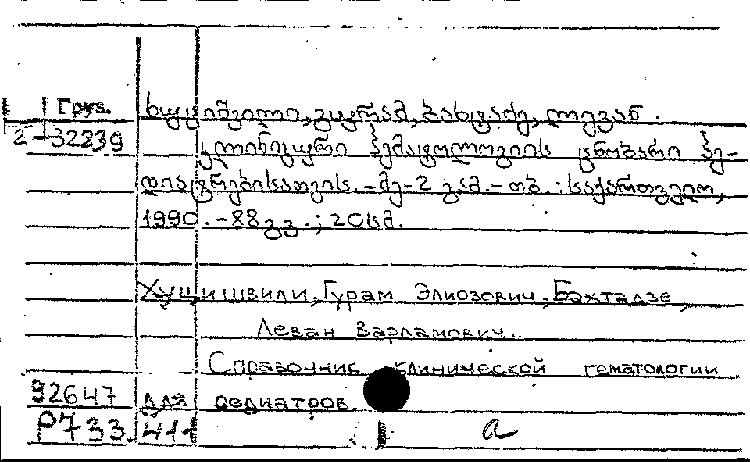 Груз. ხუციშვილი, გურამ, ბახტაძე, ლევან.
2-32239 კლინიკური ჰემატოლოგიის ცნობარი პე-
დიატრებისათვის. -მე-2 გამ. - თბ. : საქართველო,
1990. - 88 გვ. ; 20 სმ.
Хуцишвили, Гурам Элиозович, Бахтадзе,
Леван Варламович.
Справочник клинической гематологии
92647 для педиатров
P733.411 a